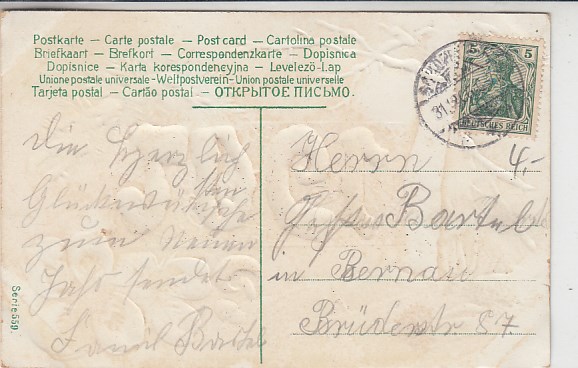 Postkarte – Carte postale – Post card – Cartolina postale
Briefkaart – Brefkort – Correspondenzkarte – Dopisnica
Dopisnice – Karta korespondencyjna – Levelező-Lap
Unione postale universale - Weltpostverein - Union postale universelle
Tarjeta postal – Cartão postal – ОТКРЫТОЕ ПИСЬМО.
5
DEUTSCHES REICH
31.12
4,-
Die Herzlich
sten
Glückwünsche
zum neuen
Jahr sendet
Famil Bartel
Herrn
Bartel
in Bernau
Brüderstr 87
Serie 559